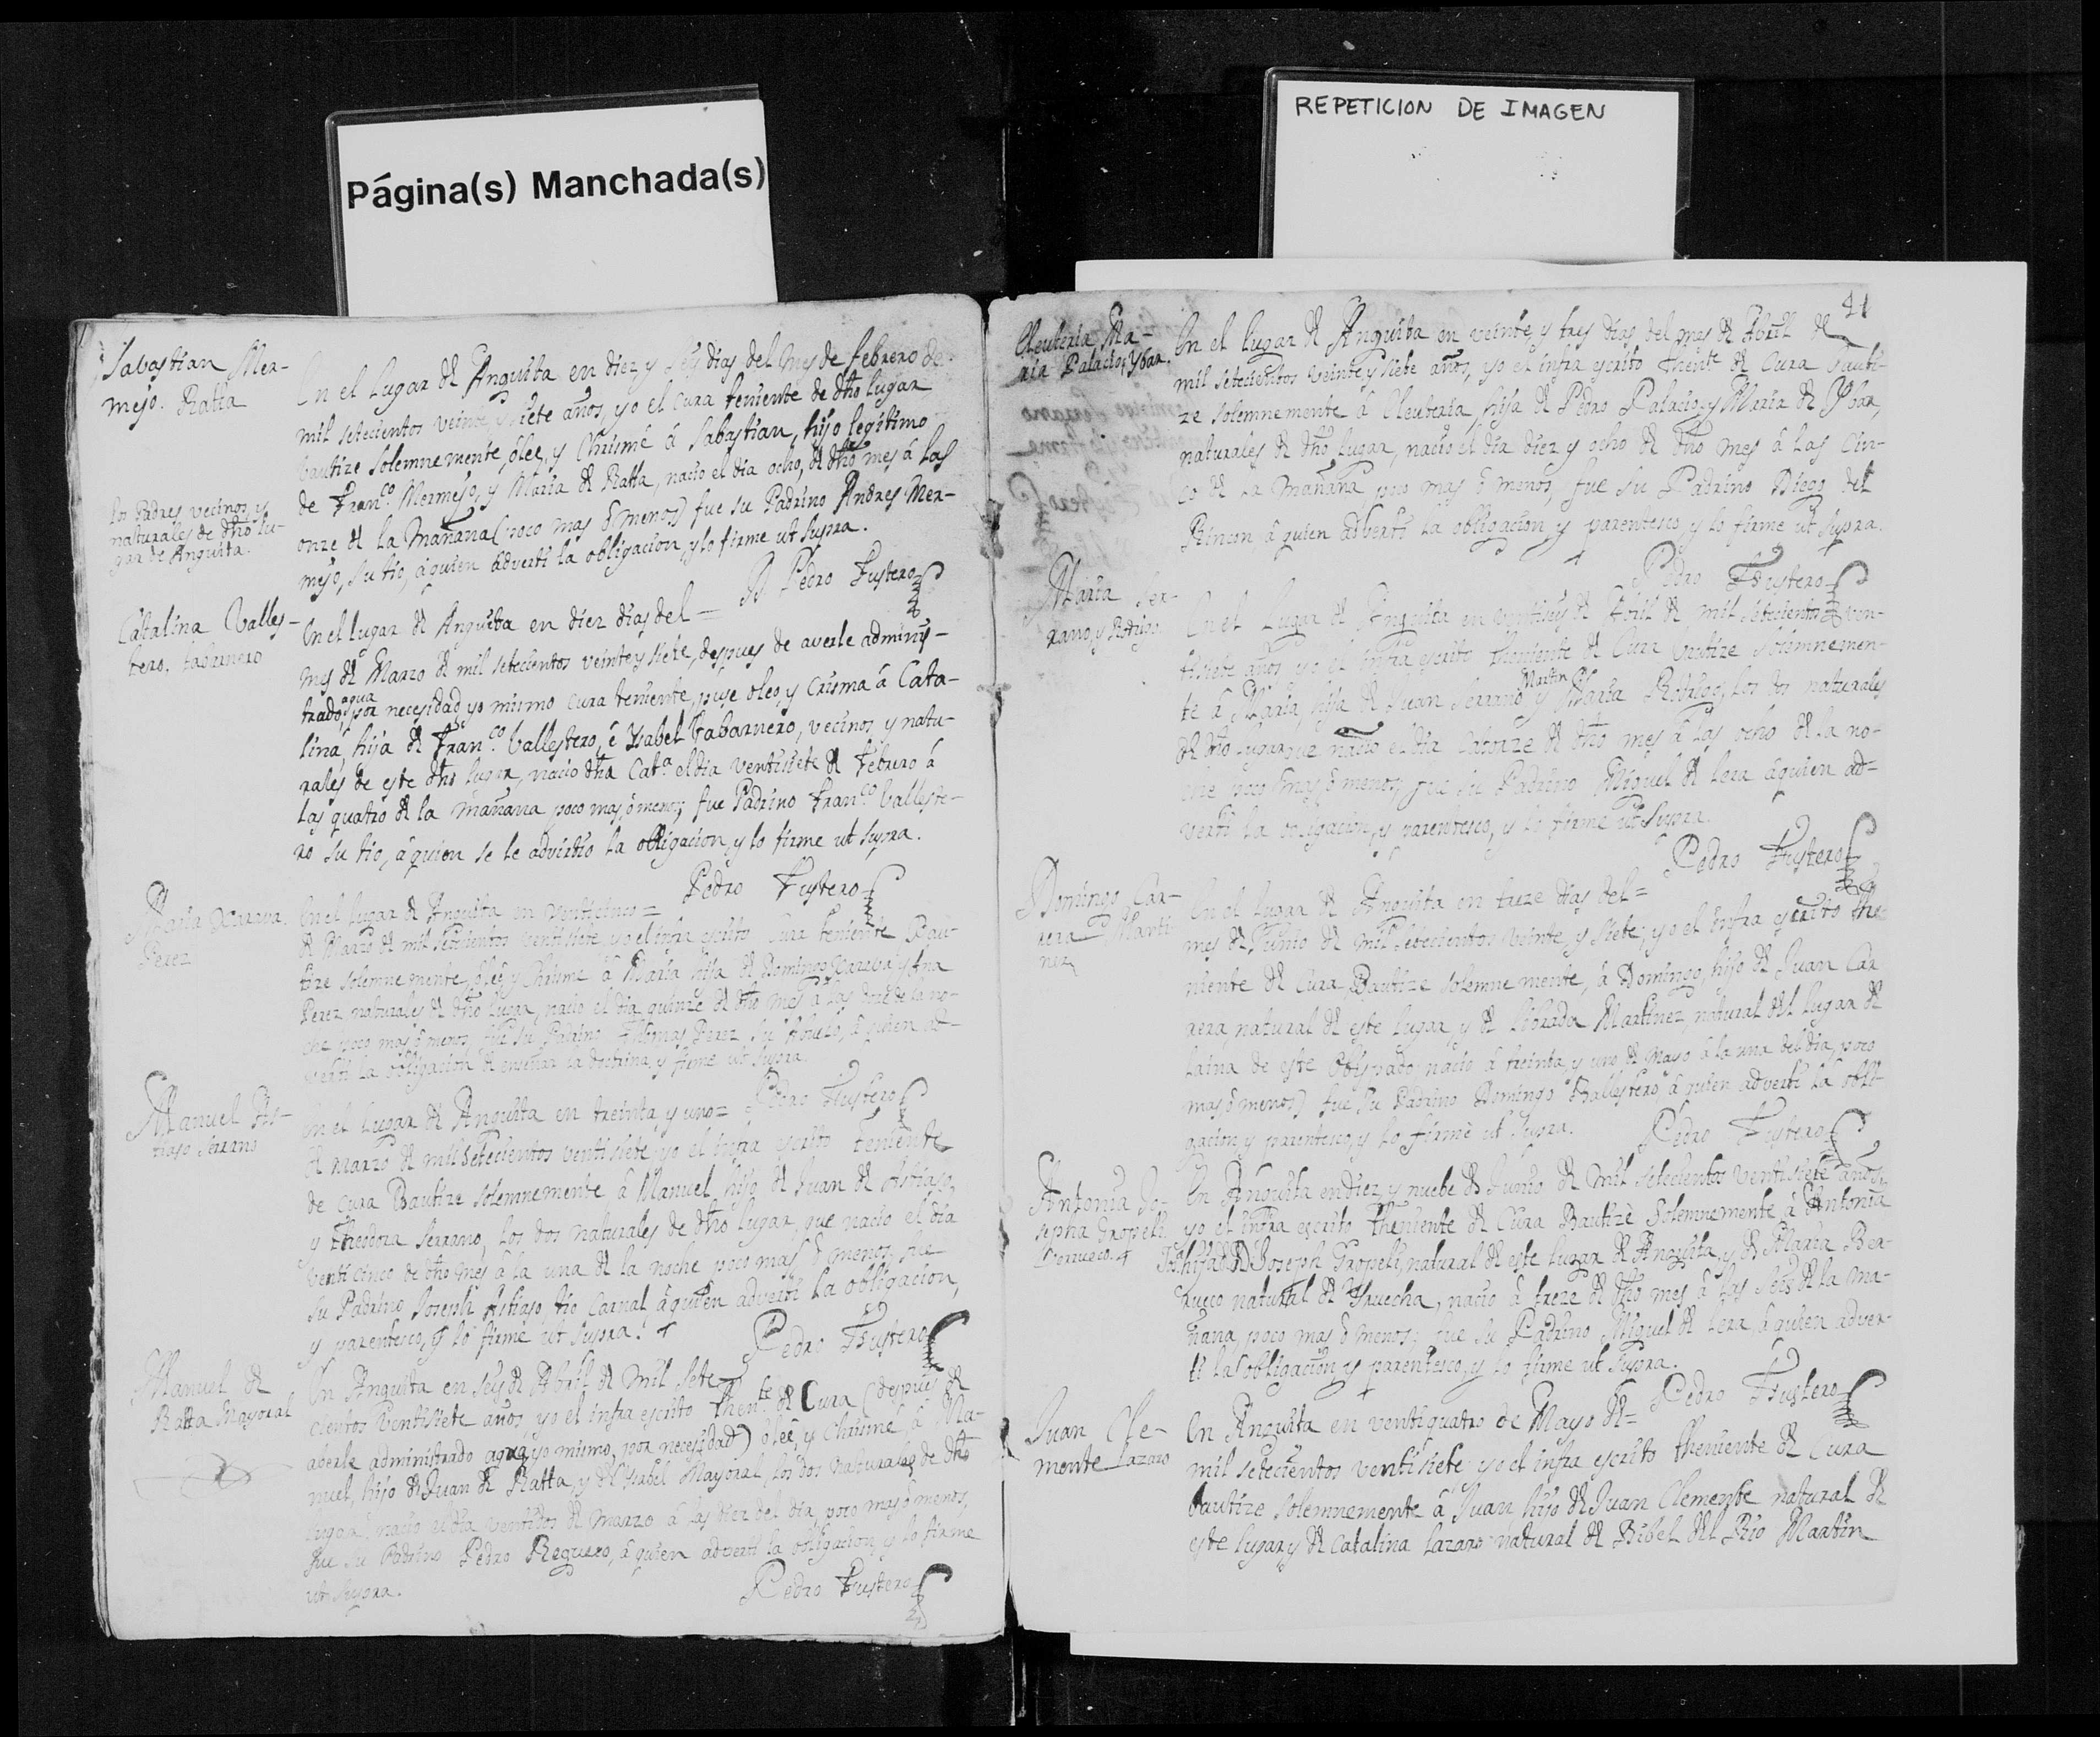 Página(s) Manchada(s)
REPETICION DE IMAGEN
Sabastian Mer-
mejo. Ratta
En el Lugar de Anguita en diez y seys dias del Mes de febrero de
mil setecientos veinte y siete años, yo el Cura teniente de dho lugar
bautize solemnemente, ólee, y Chrismé á Sabastian, hijo legitimo
de Franco. Mermejo, y Maria de Ratta, nacio el dia ocho, de dho mes á las
onze de la Mañana (poco mas ó menos) fue su Padrino Andres Mer-
mejo, su tio, á quien adverti la obligacion, y lo firme ut supra.
Los Padres vecinos, y
naturales de dho Lu-
gar de Anguita.
Pedro Fustero
Catalina Valles-
tero. tabarnero
En el lugar de Anguita en diez dias del =
mes de Marzo de mil setecientos veinte y siete, despues de averle adminis-
trado agua por necesidad yo mismo Cura teniente, puse oleo, y Crisma á Cata-
lina, hija de Franco. Vallestero, é Ysabel tabarnero, vecinos, y natu-
rales de este dho lugar, nacio dha Cata. el dia ventisiete de Febrero á
las quatro de la mañana poco mas, ó menos; fue Padrino Franco. Valleste-
ro su tio, á quien se le advirtio la obligacion, y lo firme ut supra.
Pedro Fustero
Maria
Perez
En el lugar de Anguita en venticinco =
de Marzo de mil setecientos ventisiete, yo el infra escrito Cura teniente Bau-
tize solemnemente, óleé, y Chrismé á Maria hija de Domingo y Ana
Perez naturales de dho lugar, nacio el dia quinze de dho mes á las doze de la no-
che poco mas, ó menos, fue su Padrino Thomas Perez, su Abuelo, á quien ad-
verti la obligacion de enseñar la doctrina, y firme ut supra.
Pedro Fustero
Manuel As-
tiaso Serrano
En el Lugar de Anguita en treinta, y uno =
de Marzo de mil setecientos ventisiete yo el infra escrito teniente
de Cura Bautize solemnemente á Manuel hijo de Juan de Astiaso,
y theodora Serrano, los dos naturales de dho lugar, que nacio el dia
venticinco de dho mes á la una de la noche poco mas, ó menos, fue
su Padrino Joseph Astiaso, tio Carnal á quien adverti la obligacion,
y parentesco, y lo firme ut supra.
Pedro Fustero
Manuel de
Ratta Mayoral
En Anguita en seys de Abril de Mil sete-
cientos ventisiete años, yo el infra escrito thente. de Cura (despues de
aberle administrado agua, yo mismo, por necesidad) óleé, y Chrismé, á Ma-
nuel, hijo de Juan de Ratta, y de Ysabel Mayoral, los dos naturales de dho
lugar, nacio el dia ventidos de Marzo á las diez del dia, poco mas, ó menos,
fue su Padrino Pedro Reguero, á quien adverti la obligacion, y lo firme
ut supra.
Pedro Fustero
41
Eleuteria Ma-
ria Palacio, Ybar.
En el lugar de Anguita en veinte, y tres dias del mes de Abril de
mil setecientos veinte y siete años, yo el infra escrito thente de Cura bauti-
ze solemnemente á Eleuteria, hija de Pedro Palacio, y Maria de Ybar,
naturales de dho lugar, nacio el dia diez y ocho de dho mes á las cin-
co de la Mañana poco mas ó menos, fue su Padrino Diego del
Rincon á quien adverti la obligacion, y parentesco, y lo firme ut supra.
Pedro Fustero
Maria Ser-
rano, y Rodrigo.
En el Lugar de Anguita en ventiseis de Abril de mil setecientos ven-
tisiete años yo el infra escrito theniente de Cura bautize solemnemen-
te á Maria, hija de Juan Serrano Martin y Maria Rodrigo, los dos naturales
de dho lugar, que nacio el dia catorze de dho mes á las ocho de la no-
che poco mas, ó menos, fue su Padrino Miguel de Lera á quien ad-
verti la obligacion, y parentesco, y lo firme ut supra.
Pedro Fustero
Domingo Car-
rera Marti-
nez
En el Lugar de Anguita en treze dias del =
mes de Junio de mil setecientos veinte, y siete, yo el infra escrito the-
niente de Cura Bautize solemnemente, á Domingo, hijo de Juan Car
rera, natural de este lugar, y de Librada Martinez, natural del lugar de
Laina de este Obispado, nacio á treinta, y uno de Mayo á la una del dia, poco
mas, ó menos) fue su Padrino Domingo Ballestero, á quien adverti la obli-
gacion y parentesco, y lo firmé ut supra.
Pedro Fustero
Antonia Jo-
sepha Gropeli
Berrueco.
En Anguita en diez y nuebe de Junio de mil setecientos ventisiete años,
yo el infra escrito theniente de Cura Bautizé Solemnemente á Antonia
hija de Dn Joseph Gropeli, natural de este lugar de Anguita, y de Maria Ber-
rueco natural de Yruecha, nacio á treze de dho mes á las seis de la ma-
ñana, poco mas ó menos, fue su Padrino Miguel de Lera, á quien adver-
ti la obligacion, y parentesco, y lo firme ut supra.
Pedro Fustero
Juan Cle-
mente Lazaro
En Anguita en ventiquatro de Mayo de =
mil setecientos ventisiete yo el infra escrito theniente de Cura
bautize solemnemente á Juan hijo de Juan Clemente natural de
este lugar, y de Catalina Lazaro natural de Bibel del Rio Martin